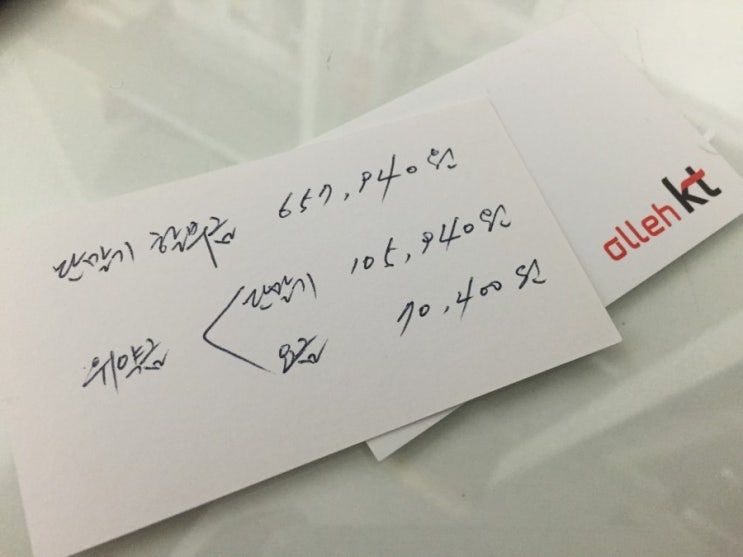 단말기 할부금 657,940원
위약금 < 단말기 105,940원
요금 70,400원
olleh kt